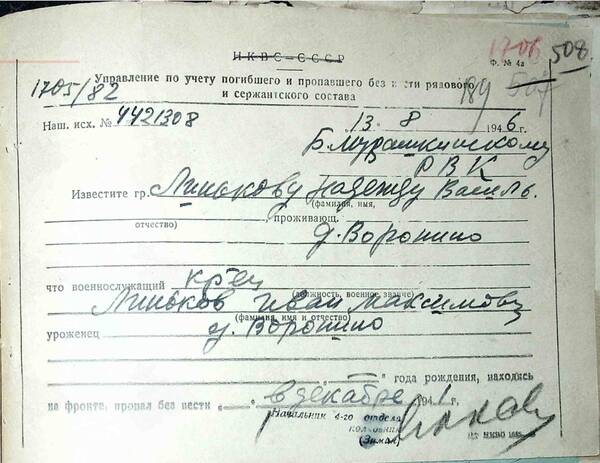 НКВС-СССР
Ф. № 4а
1706 508
507
Управление по учету погибшего и пропавшего без вести рядового
1705/82
и сержантского состава
189
Наш. исх. № 4421308
13 - 8 1946 г.
Б. Мурашкинскому
РВК
Известите гр. Линькову Надежду Василь.
(фамилия, имя,
отчество)
, проживающ.
д. Воронино
что военнослужащий кр-ец
(должность, военное звание)
Линьков Иван Максимович
(фамилия, имя и отчество)
уроженец д. Воронино
года рождения, находясь
на фронте, пропал без вести „—“ в декабре 1941 г.
Начальник 4-го отдела
полковник
(Зимал)